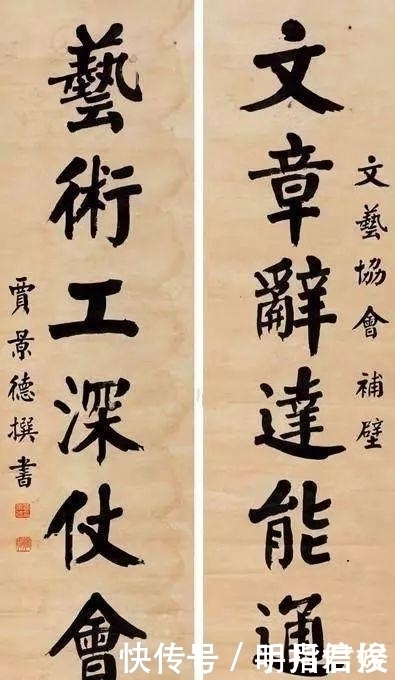 文藝協會補壁
文章辭達能通
藝術工深仗會
賈景德撰書
快传号 /